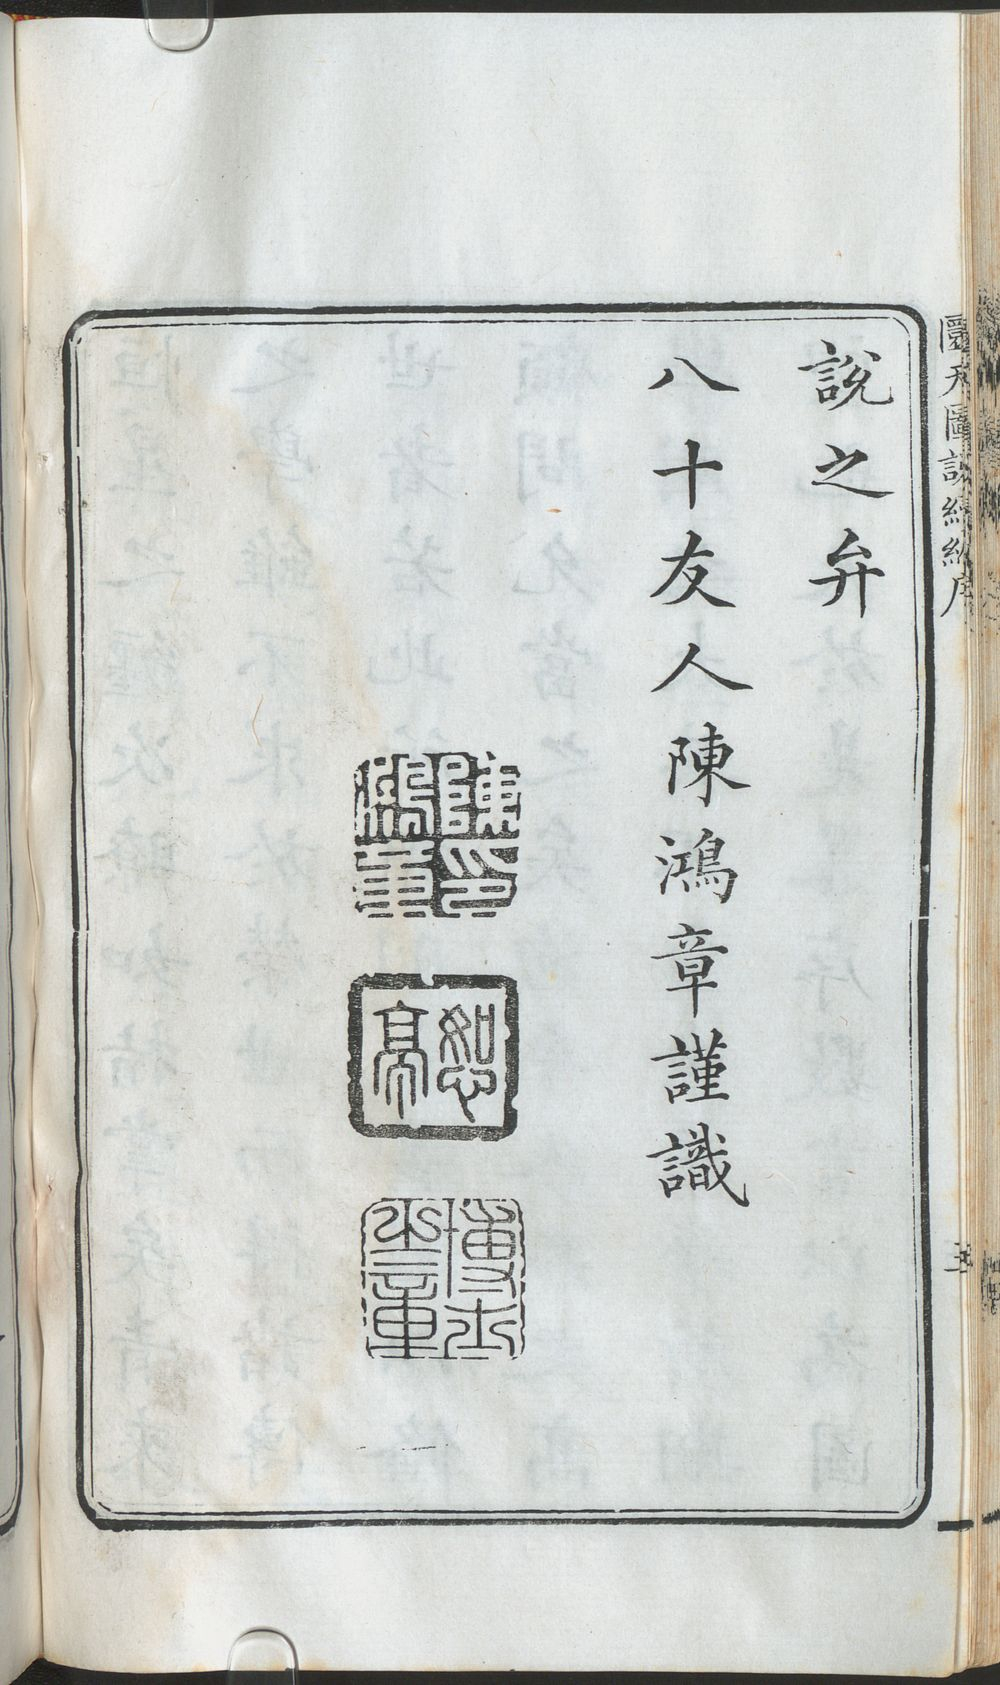 圜天圖說續編序
說之弁
八十友人陳鴻章謹識
陳印鴻章
恕亭